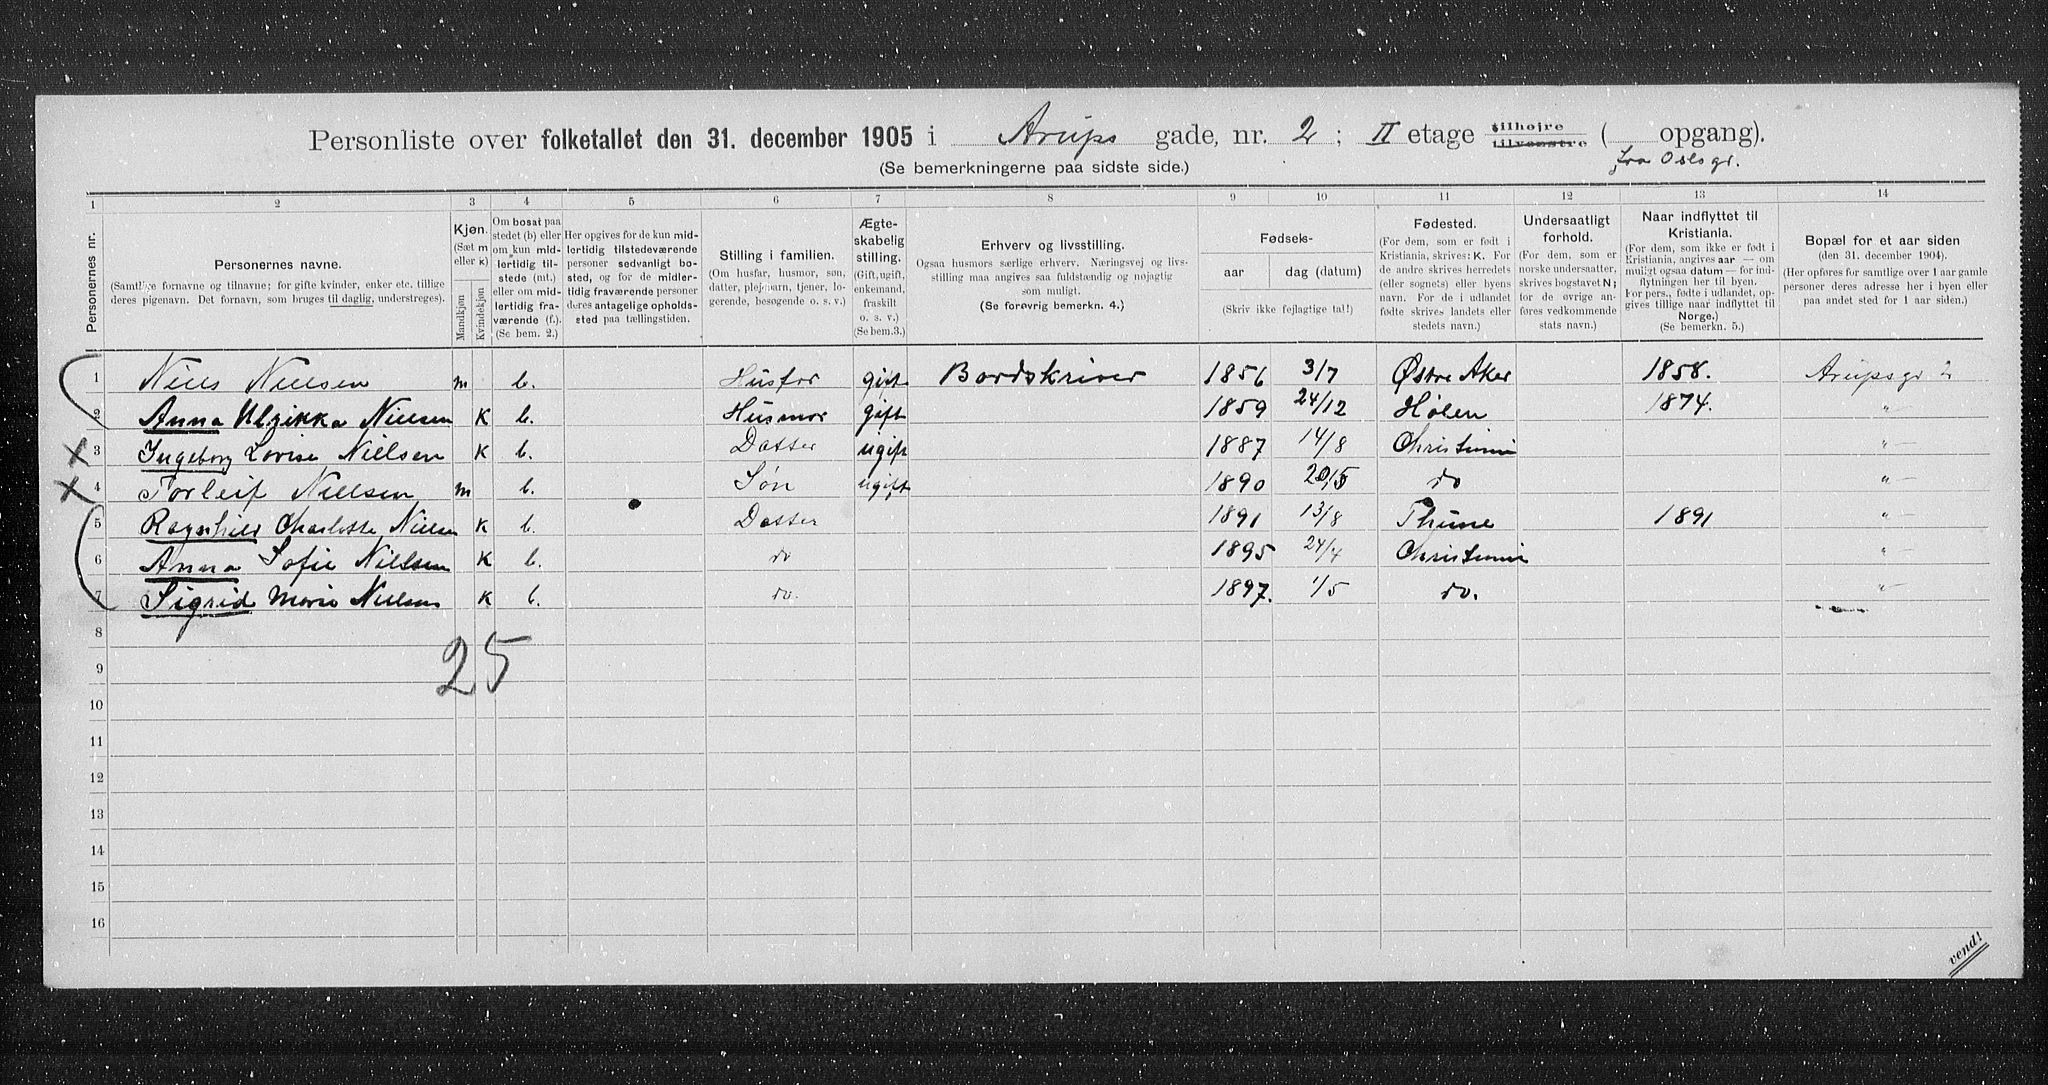 Personliste over folketallet den 31. december 1905 i Arups gade, nr. 2; II etage tilhøjre tilvenstre ( opgang).
(Se bemerkningerne paa sidste side.)
fra Oslogt.
1 2 3 4 5 6 7 8 9 10 11 12 13 14
Personernes nr.
Personernes navne.
(Samtlige fornavne og tilnavne; for gifte kvinder, enker etc. tillige
deres pigenavn. Det fornavn, som bruges til daglig, understreges).
Kjøn.
(Sæt m
eller k)
Mandkjøn
Kvindekjøn
Om bosat paa
stedet (b) eller
om kun mid-
lertidig til-
stede (mt.)
eller om mid-
lertidig fra-
værende (f.).
(Se bem. 2.)
Her opgives for de kun mid-
lertidig tilstedeværende
personer sedvanligt bo-
sted, og for de midler-
tidig fraværende personer
deres antagelige opholds-
sted paa tællingstiden.
Stilling i familien.
(Om husfar, husmor, søn,
datter, plejebarn, tjener, lo-
gerende, besøgende o. s. v.)
Ægte-
skabelig
stilling.
(Gift, ugift,
enkemand,
fraskilt
o. s. v.)
(Se bem.3.)
Erhverv og livsstilling.
Ogsaa husmors særlige erhverv. Næringsvej og livs-
stilling maa angives saa fuldstændig og nøjagtig
som muligt.
(Se forøvrig bemerkn. 4.)
Fødsels-
aar
dag (datum)
(Skriv ikke fejlagtige tal!)
Fødested.
(For dem, som er født i
Kristiania, skrives: K. For
de andre skrives herredets
(eller sognets) eller byens
navn. For de i udlandet
fødte skrives landets eller
stedets navn.)
Undersaatligt
forhold.
(For dem, som er
norske undersaatter,
skrives bogstavet N;
for de øvrige an-
føres vedkommende
stats navn.)
Naar indflyttet til
Kristiania.
(For dem, som ikke er født i
Kristiania, angives aar — om
muligt ogsaa datum — for ind-
flytningen her til byen.
For pers., fødte i udlandet, op-
gives tillige naar indflyttet til
Norge.)
(Se bemerkn. 5.)
Bopæl for et aar siden
(den 31. december 1904).
(Her opføres for samtlige over 1 aar gamle
personer deres adresse her i byen eller
paa andet sted for 1 aar siden.)
1 Niels Nielsen m b. Husfar gift Bordskriver 1856 3/7 Østre Aker 1858. Arupsgt 2
2 Anna Ulrikka Nielsen K b. Husmor gift 1859 24/12 Hølen 1874. " —
3 Ingeborg Lovise Nielsen K b. Datter ugift 1887 14/8 Christiania " —
4 Torleif Nielsen m b. Søn ugift 1890 20/5 do " —
5 Ragnhild Charlotte Nielsen K b. Datter 1891 13/8 Thune 1891 " —
6 Anna Sofie Nielsen K b. do 1895 24/4 Christiania " —
7 Sigrid Marie Nielsen K b. do. 1897. 1/5 do. " —
8
25
9
10
11
12
13
14
15
16
vend!